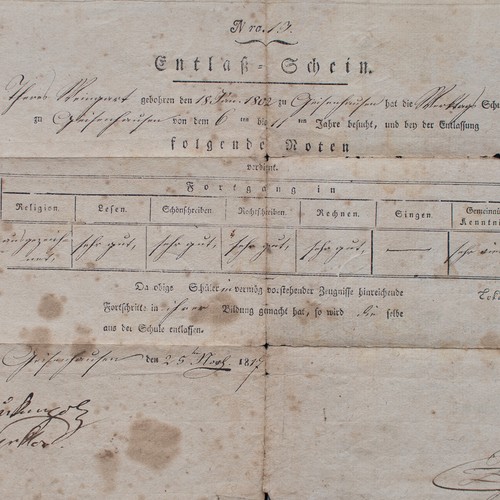 Nro. 17.
Entlaß-Schein.
Theres Weingart gebohren den 18 Jän. 1802 zu Geisenhausen hat die Werktags Sch
zu Geisenhausen von dem 6 ten bis 11 ten Jahre besucht, und bey der Entlassung
folgende Noten
verdient.
Fortgang in
Religion. Lesen. Schönschreiben. Rechtschreiben. Rechnen. Singen. Gemeinnü Kenntni
ausgezeich net, sehr gut, sehr gut, sehr gut, sehr gut, — sehr
Da obige Schüler in vermög vorstehender Zeugnisse hinreichende
Fortschritte in ihrer Bildung gemacht hat, so wird die selbe
aus der Schule entlassen.
Geisenhausen den 25 t Novb. 1817